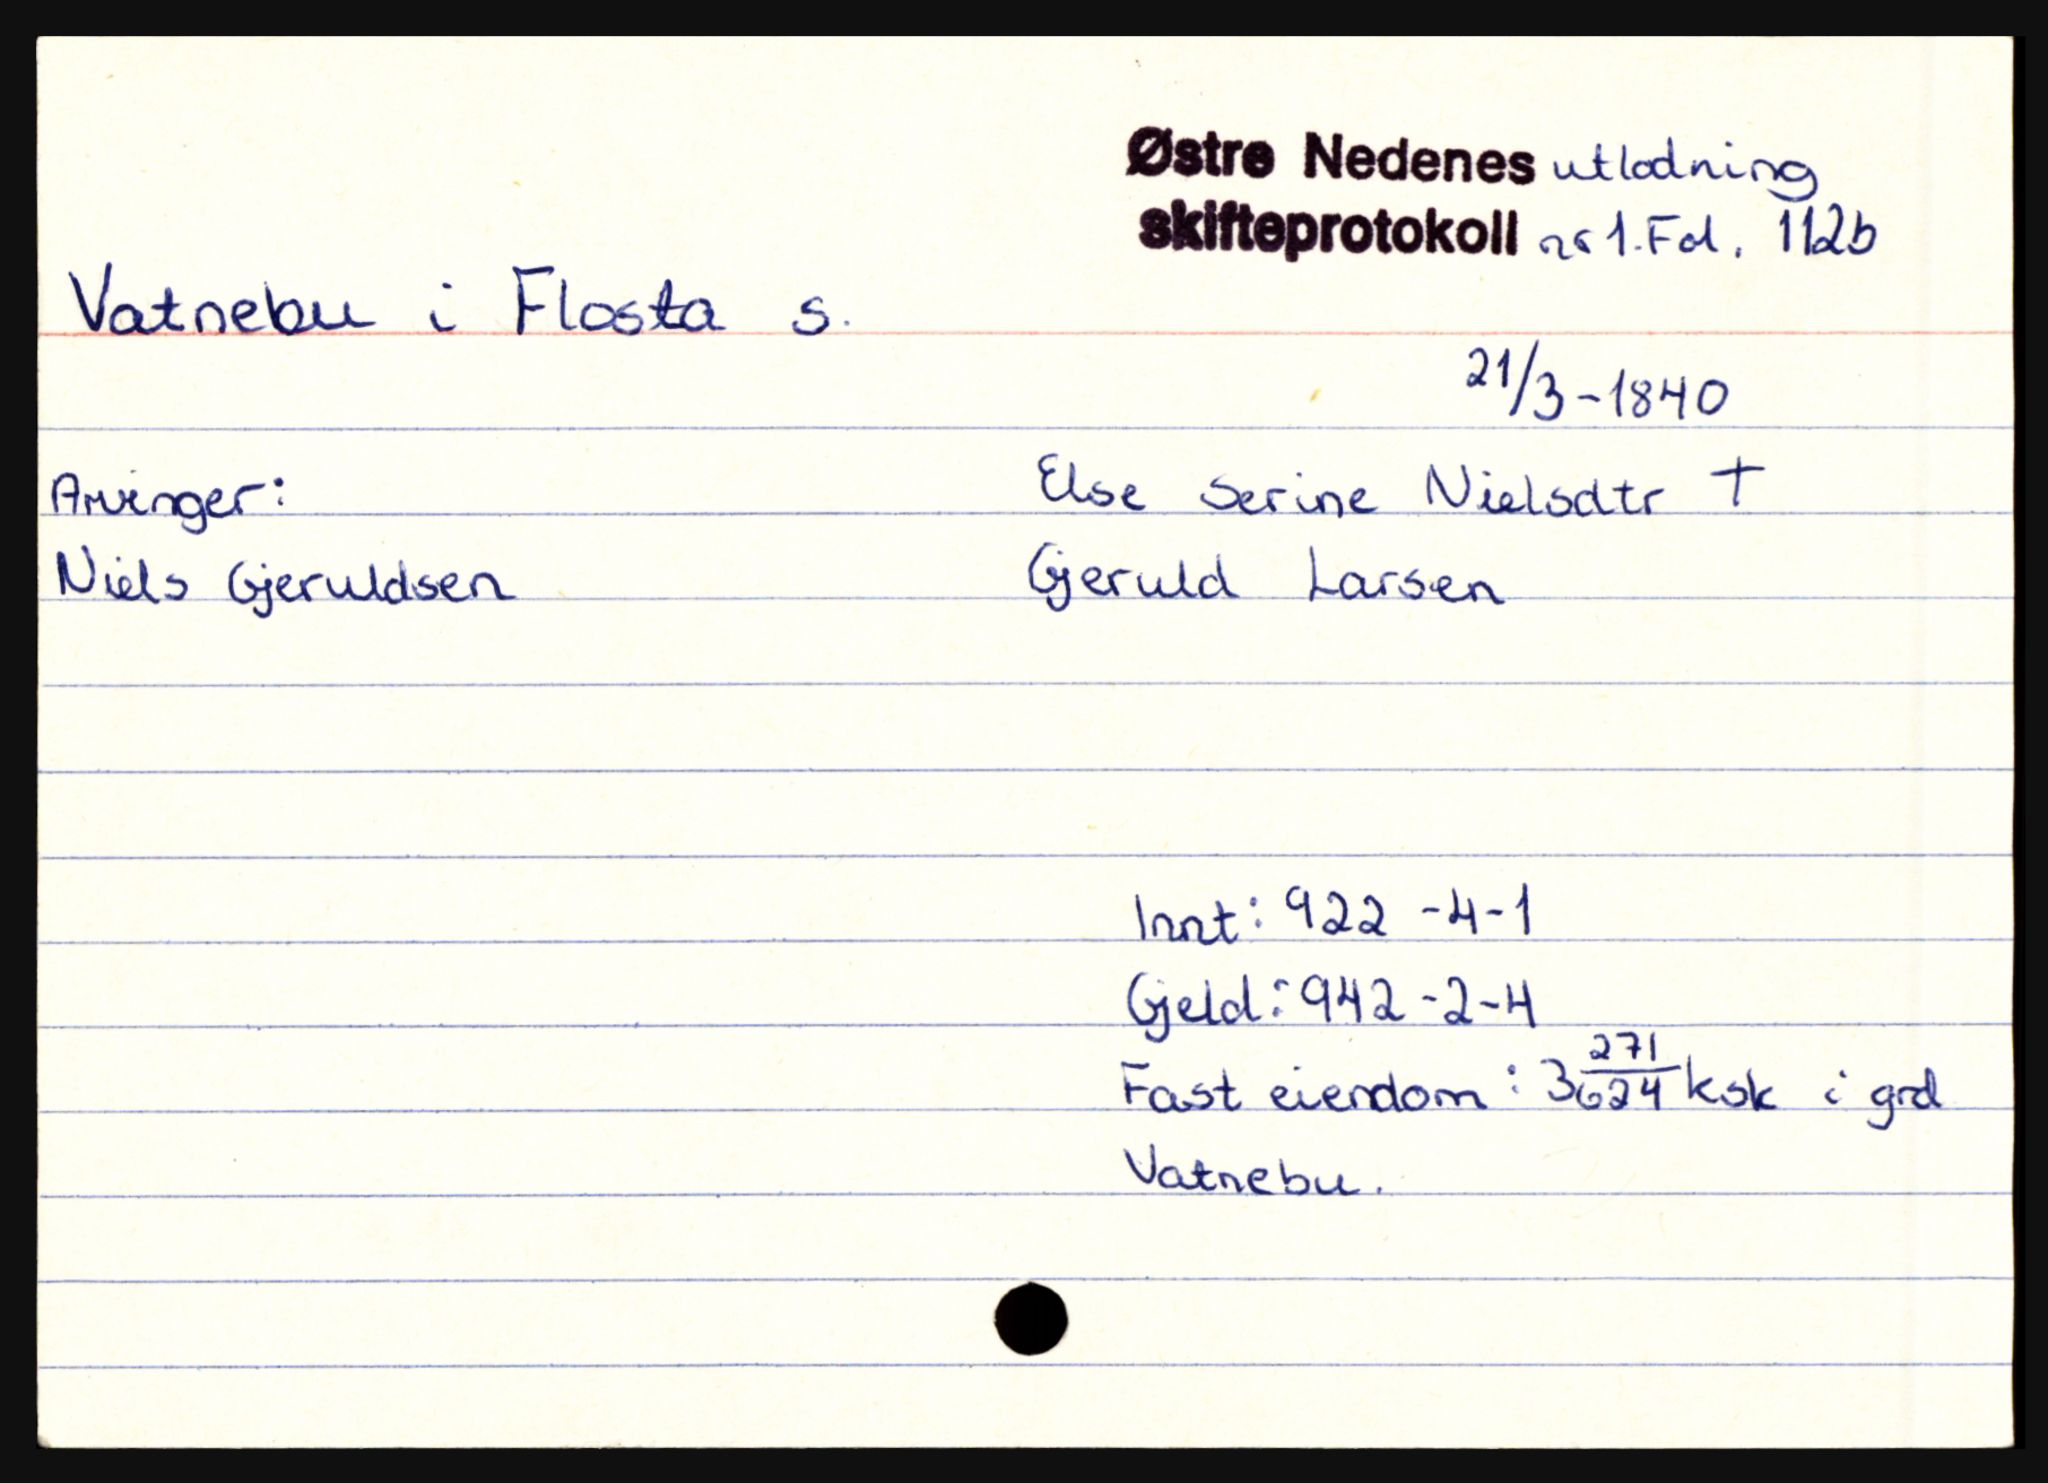 Østre Nedenes utlodning
skifteprotokoll nr 1. Fol. 112b
Vatnebu i Flosta s.
21/3-1840
Arvinger:
Else Serine Nielsdtr †
Niels Gjeruldsen
Gjeruld Larsen
Innt: 922-4-1
Gjeld: 942-2-4
Fast eiendom: 3 271/624 ksk i grd
Vatnebu.